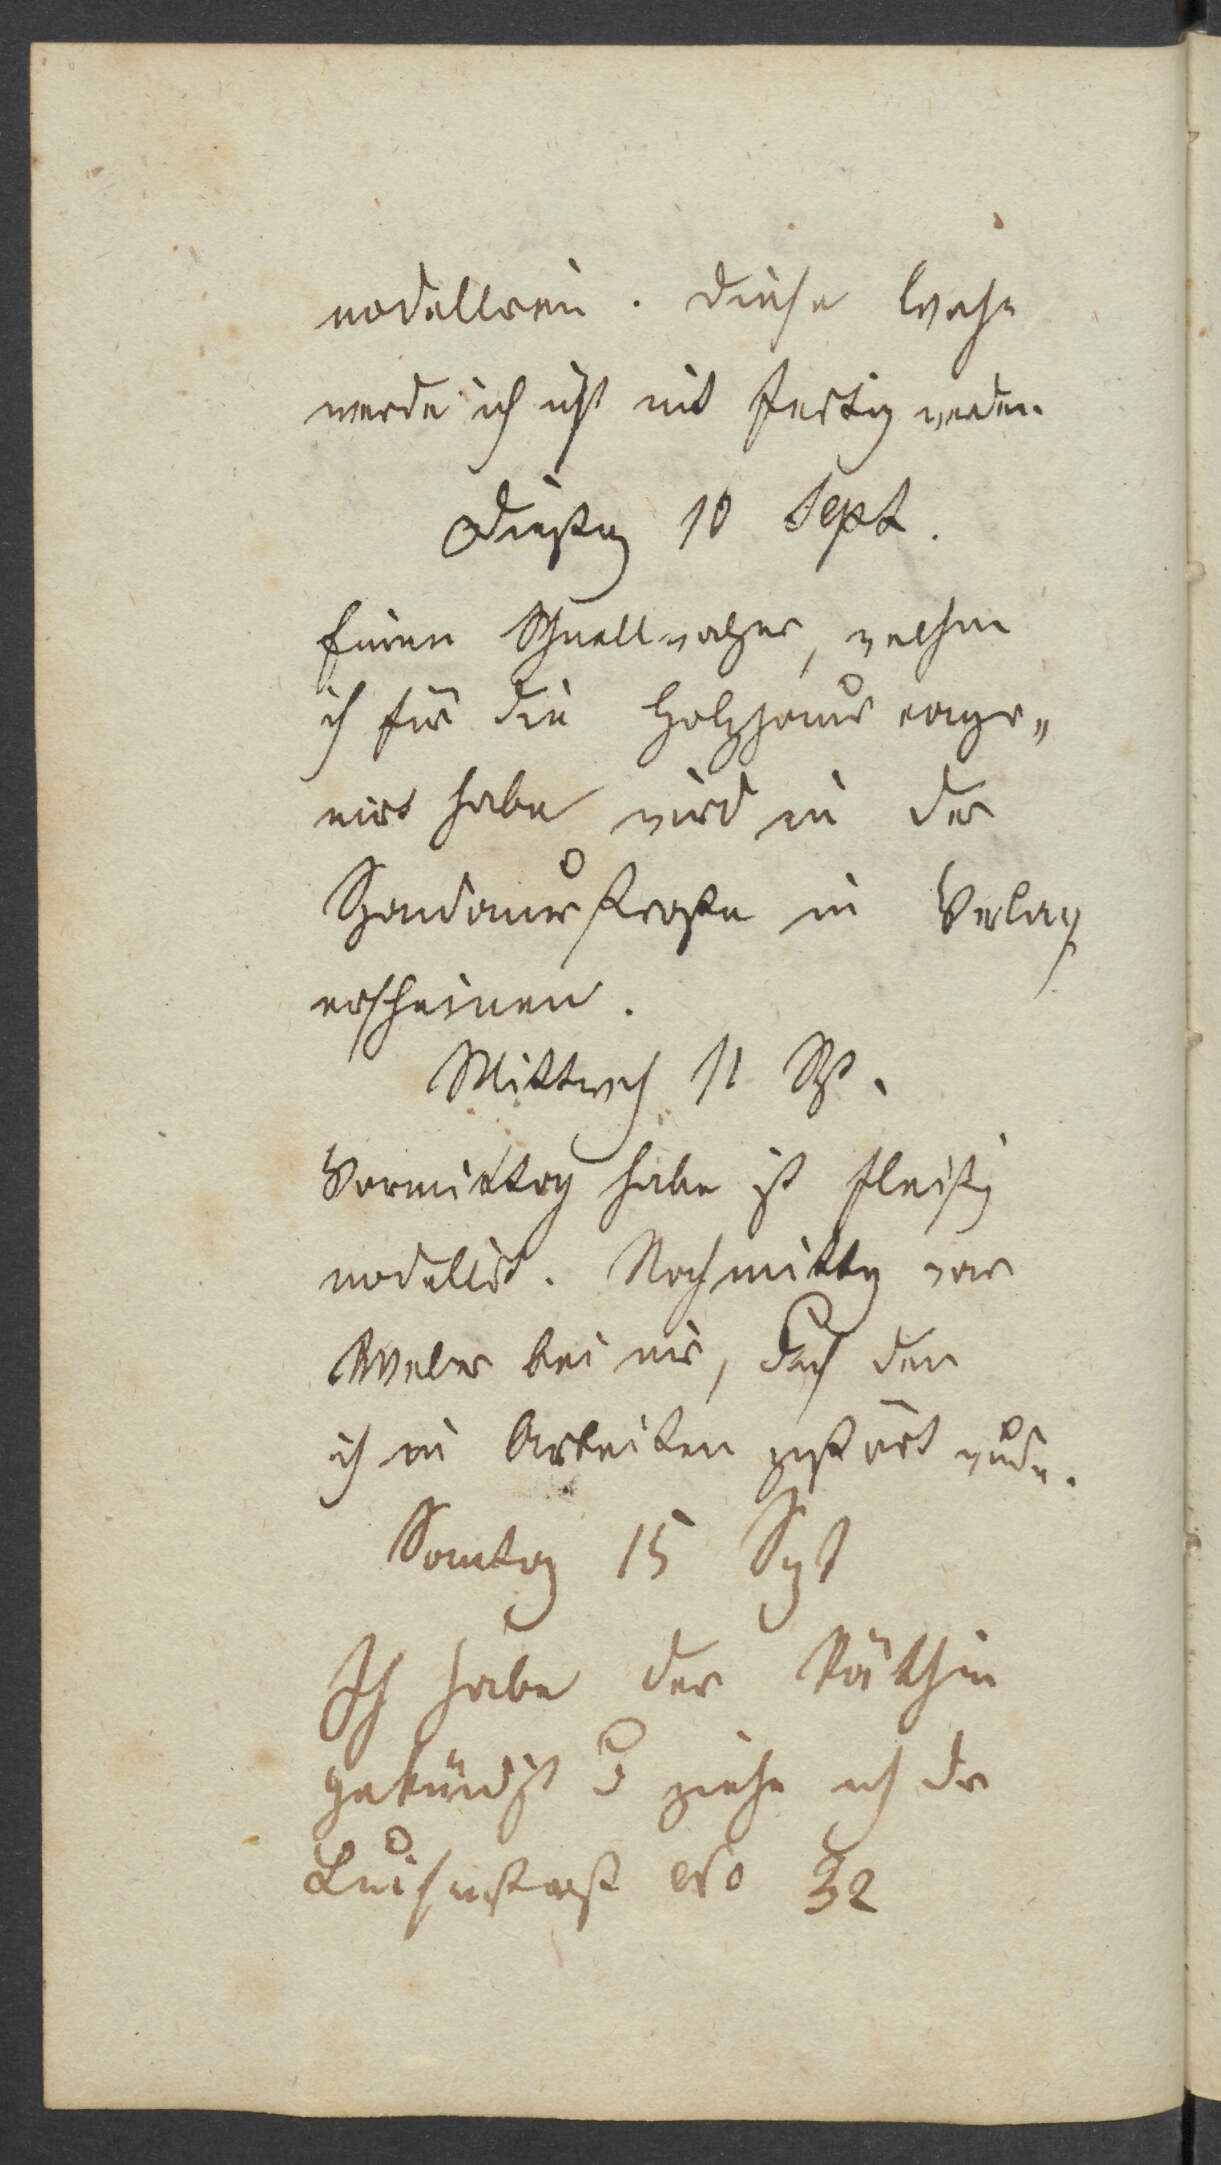 modelliren. Diese Woche
werde ich nicht mit fertig werden.
Dienstag 10 Sept.
Einen Schnellwalzer, welchen
ich für die Holz compo-
nirt habe wird in der
Spandauerstrasse in Verlag
erscheinen.
Mittwoch 11 Spt.
Vormittag habe ich fleißig
modellirt. Nachmittag war
Weber bei mir, durch den
ich im Arbeiten gestört wurde.
Sonntag 15 Spt
Ich habe der Räthin
gekündigt u ziehe nach der
Luisenstraß No 32